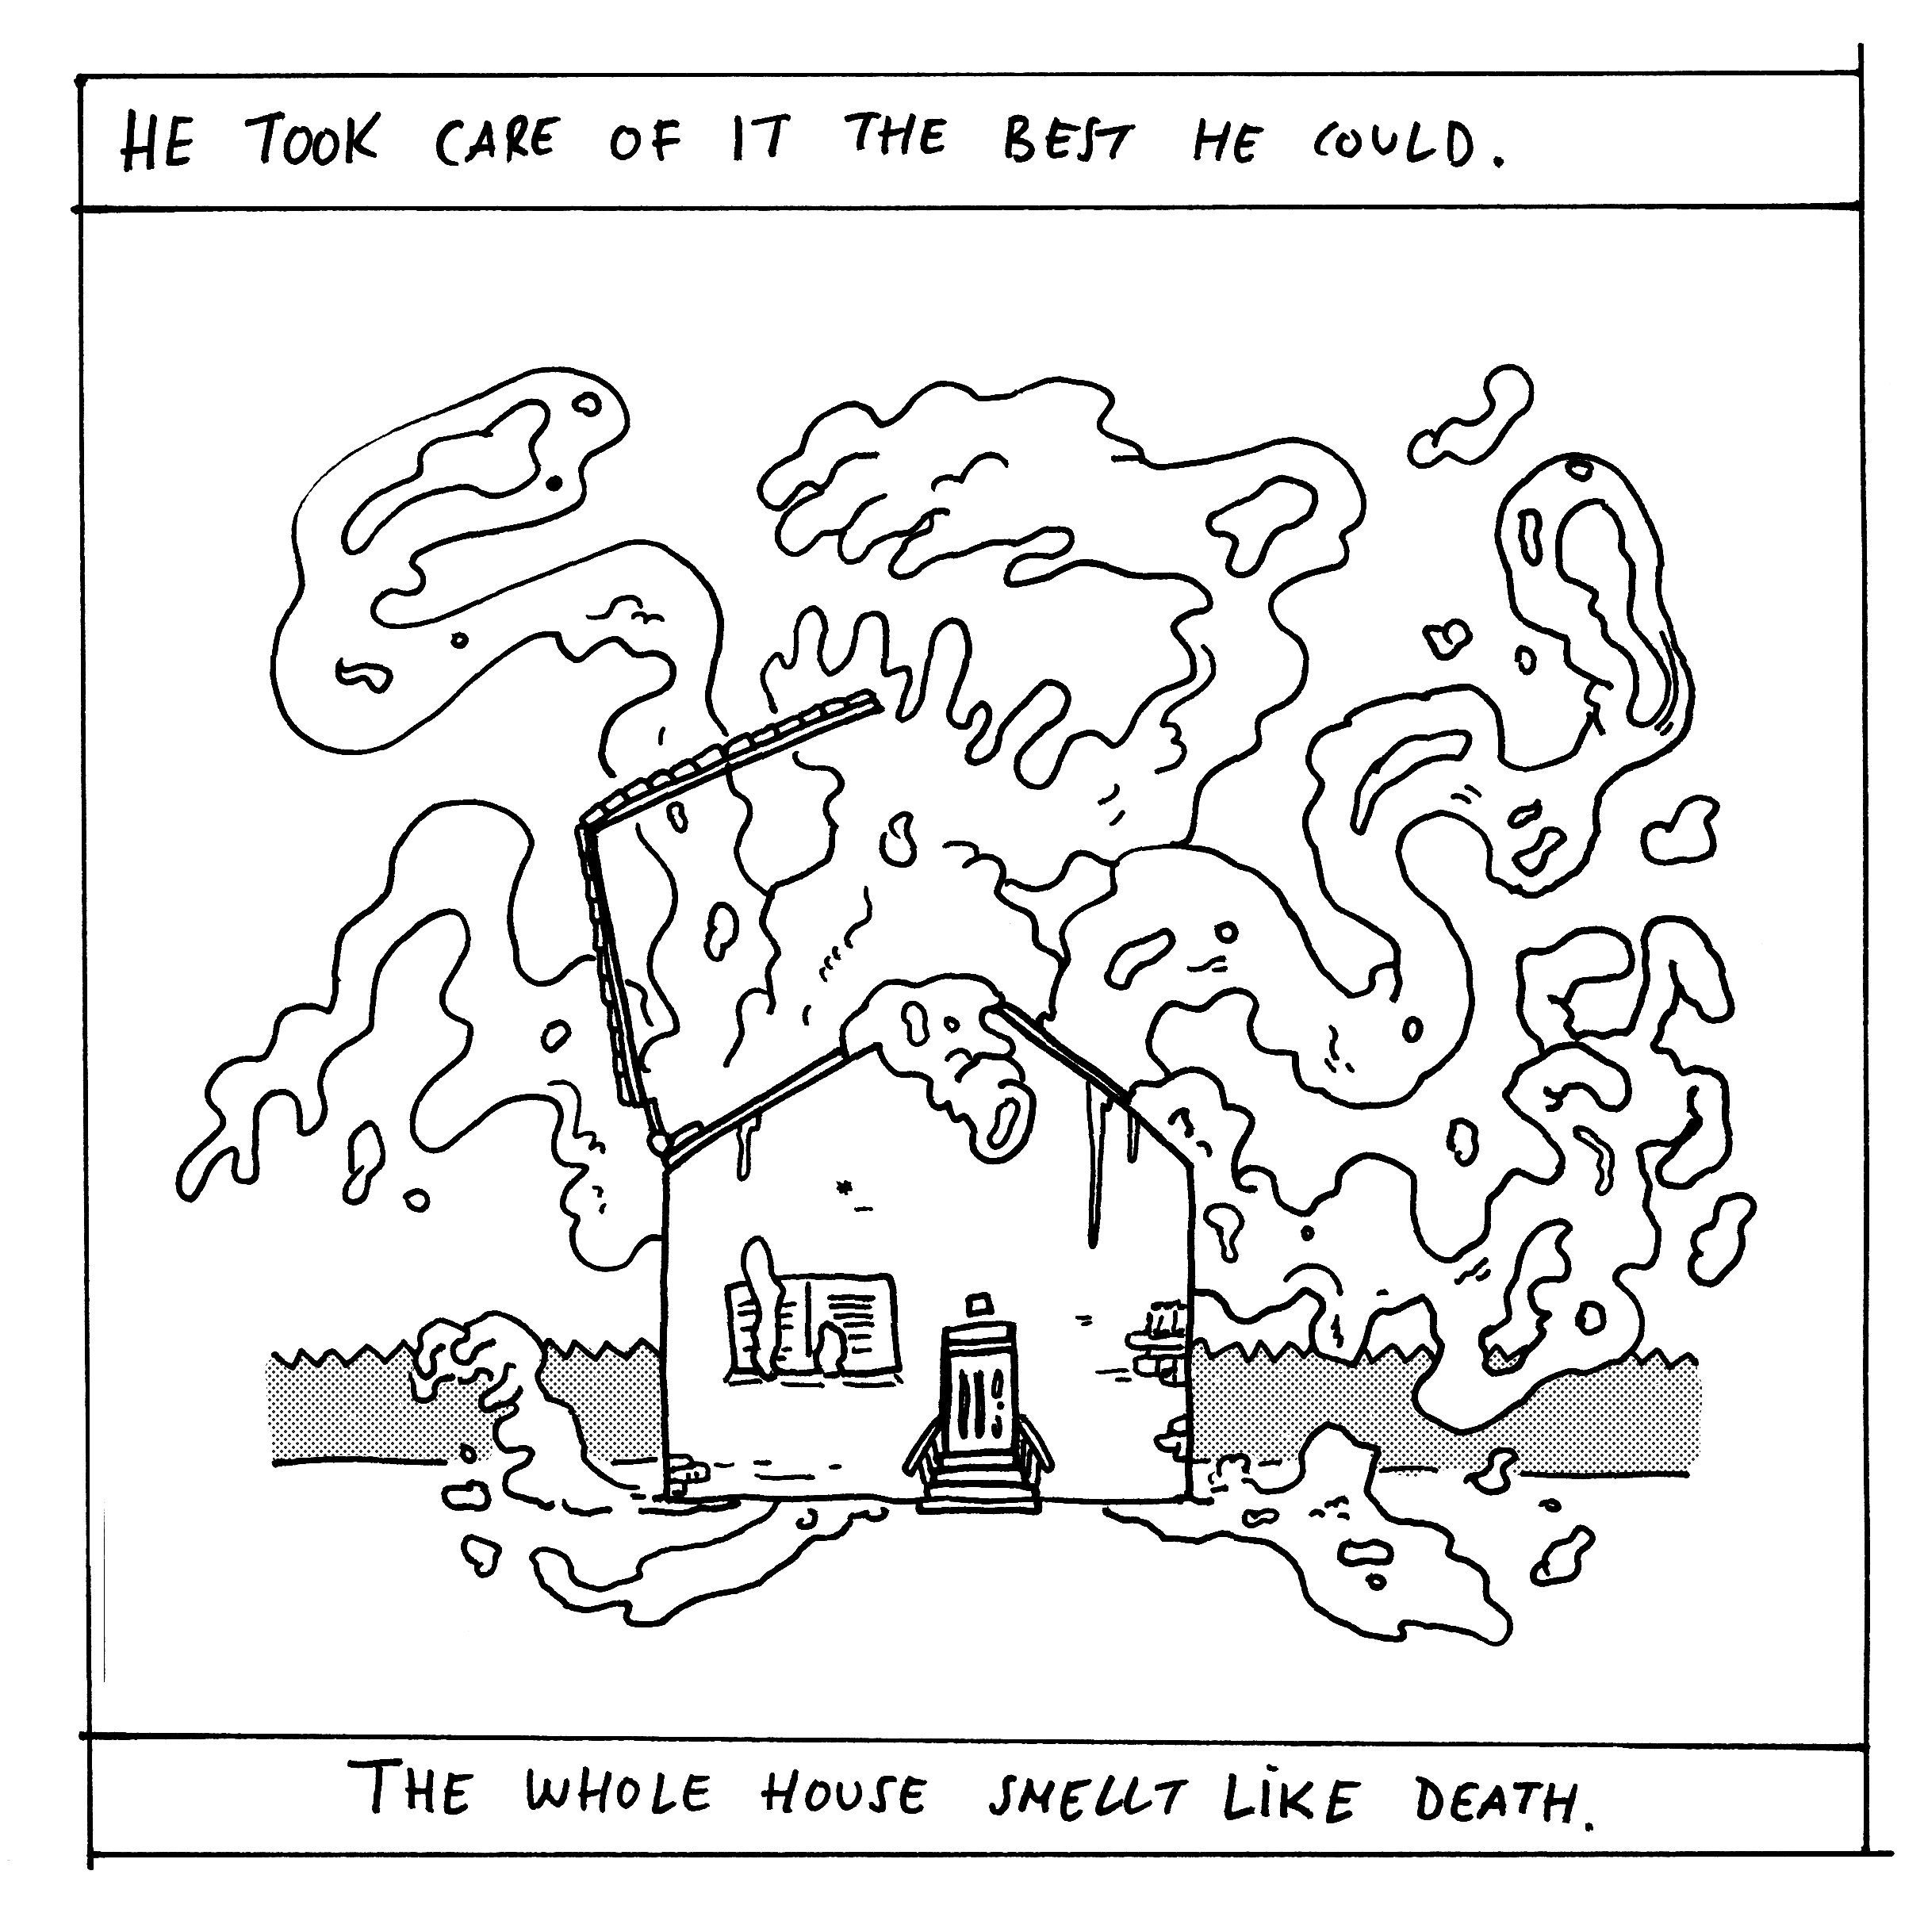 HE TOOK CARE OF IT THE BEST HE COULD.
THE WHOLE HOUSE SMELLT LIKE DEATH.